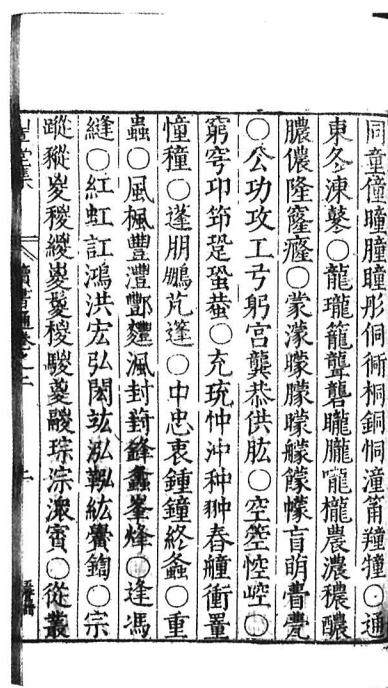 同童僮曈膧瞳彤侗衕桐銅恫潼筩羵犝○通
東冬涷鼕○龍瓏籠聾礱矓朧嚨櫳農濃穠醲
膿儂隆窿癃○蒙濛朦矇艨饛幪盲明瞢甍
○公功攻工弓躬宮龔恭供肱○空箜悾崆○
窮穹邛筇跫蛩蛬○充珫忡沖种翀舂艟衝罿
憧穜○蓬朋鵬芃篷○中忠衷鍾鐘終螽○重
蟲○風楓豐灃酆麷渢封葑鋒蠭峯烽○逢馮
縫○紅虹訌鴻洪宏弘閎竑泓鞃紘黌鍧○宗
蹤豵嵏稯緵嵕鬉椶騣葼鬷琮淙潨賨○從叢
集 卷之二